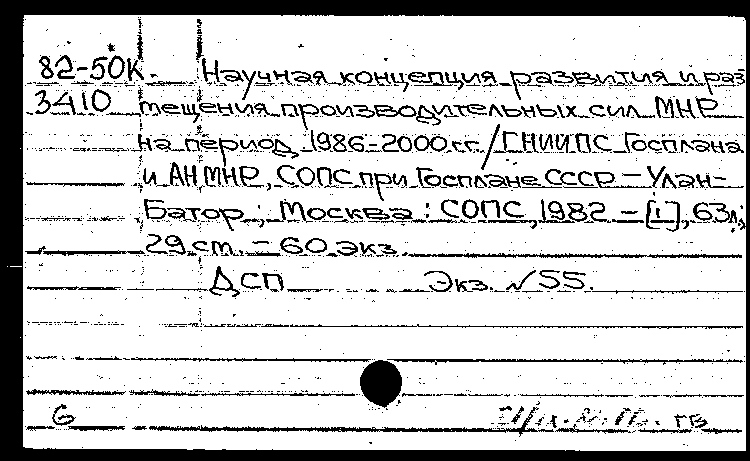 82-50К. Научная концепция развития и раз
3410 мещения производительных сил МНР
на период 1986-2000 гг. / ГНИИПС Госплана
и АН МНР, СОПС при Госплане СССР – Улан-
Батор; Москва: СОПС, 1982. – [1], 63л.;
29 ст. – 60 экз.
ДСП Экз. №55.
6 ГВ